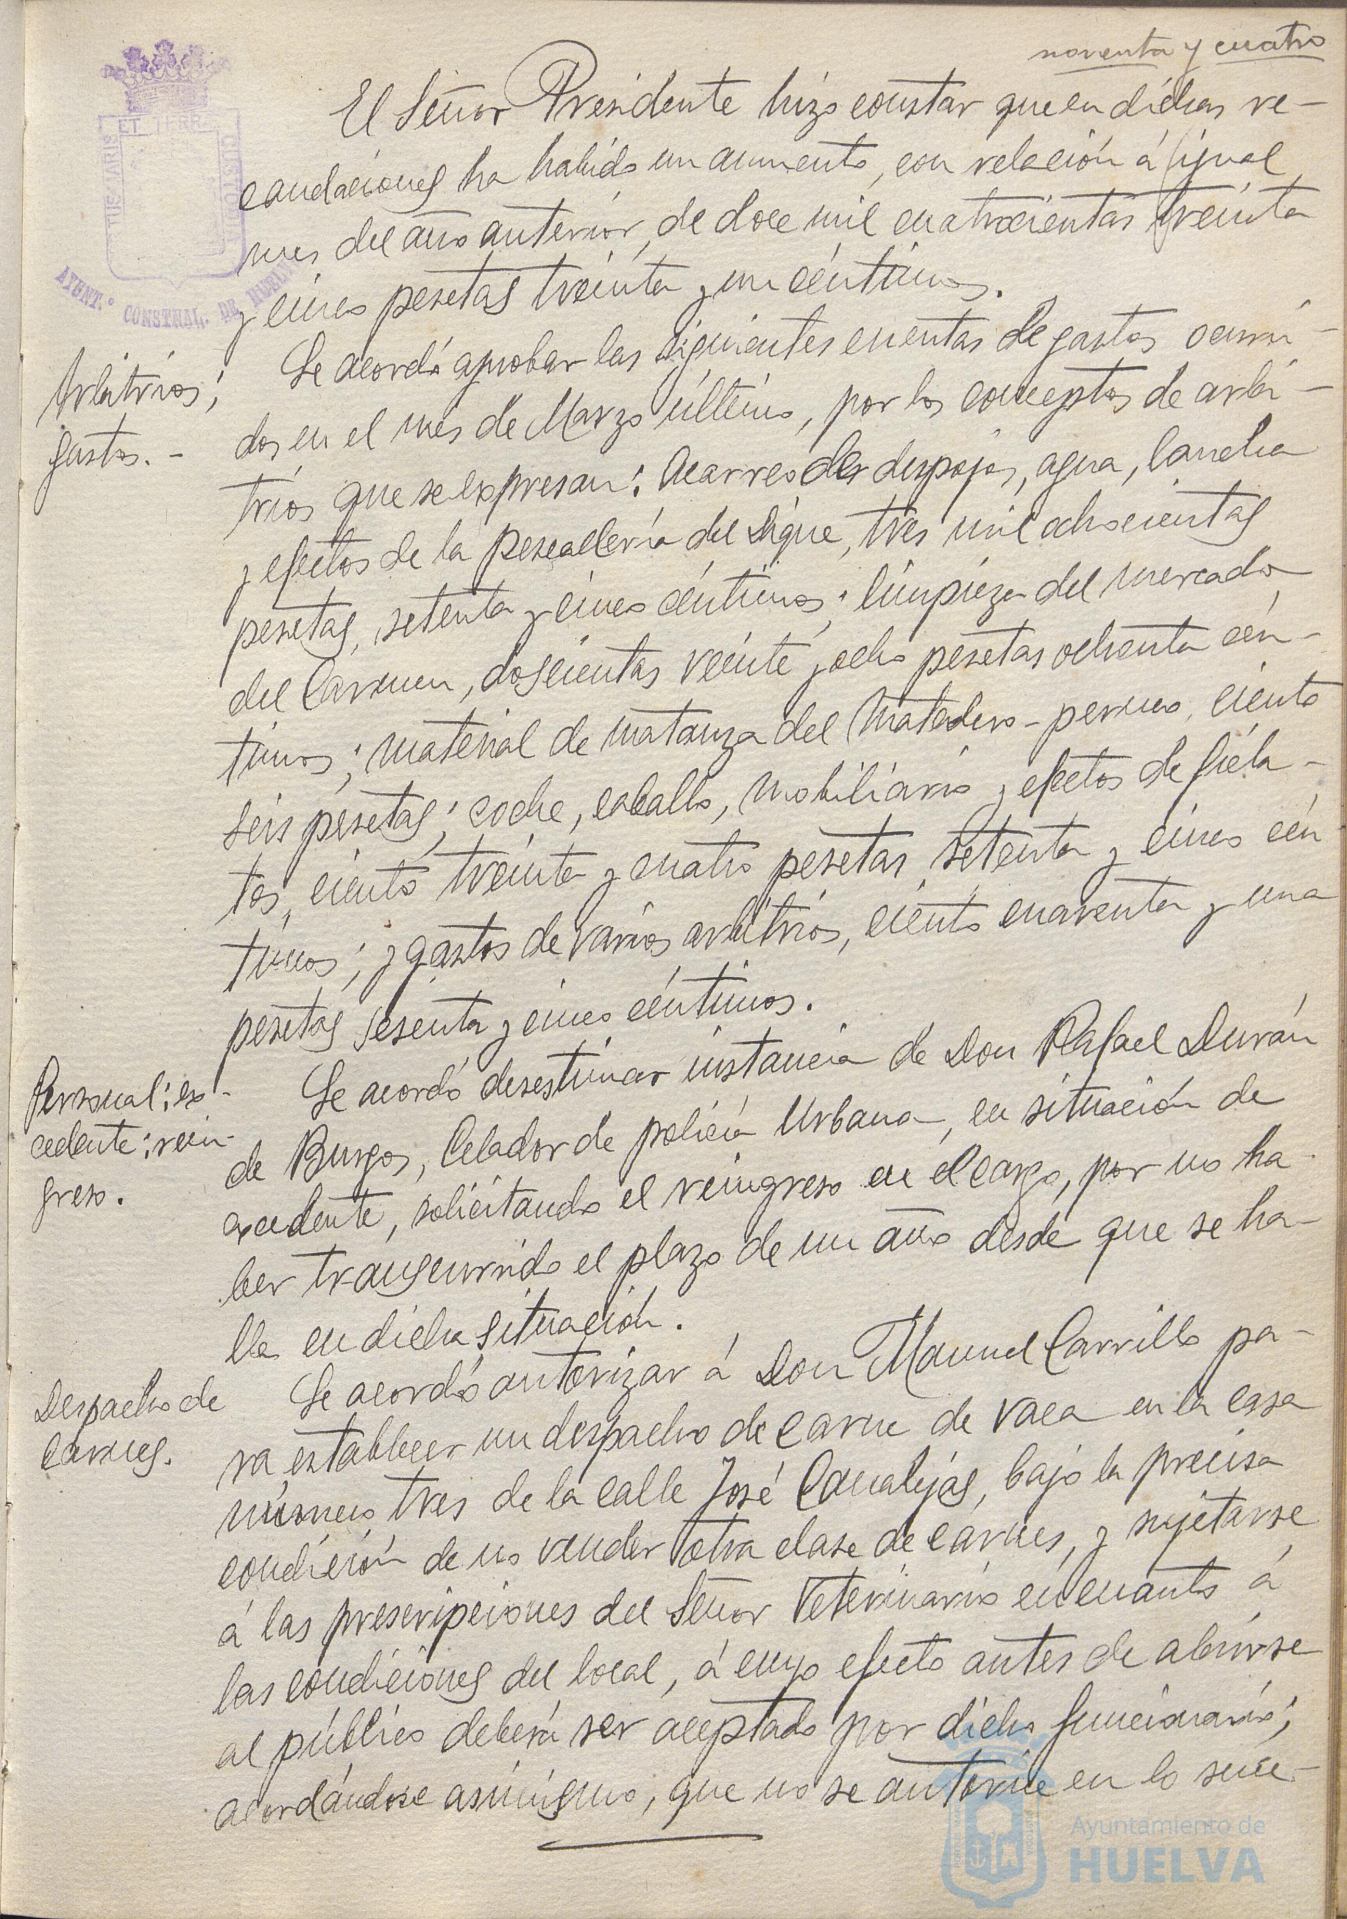 noventa y cuatro
PORTUS MARIS ET TERRAE CUSTODIA
AYUNT.º CONSTNAL. DE HUELVA
El Señor Presidente hizo constar que en dichas re-
caudaciones ha habido un aumento, con relación á igual
mes del año anterior, de doce mil cuatrocientas treinta
y cinco pesetas treinta y un céntimos.
Arbitrios;
gastos.-
Se acordó aprobar las siguientes cuentas de gastos ocurri-
dos en el mes de Marzo último, por los conceptos de arbi-
trios que se expresan: Acarreo de despojos, agua, lancha
y efectos de la pescadería del Dique, tres mil ochocientas
pesetas, setenta y cinco céntimos; limpieza del mercado
del Carmen, doscientas veinte y ocho pesetas ochenta cén-
timos; material de matanza del Matadero-permeo, ciento
seis pesetas; coche, caballo, mobiliario y efectos de fiela-
tos, ciento treinta y cuatro pesetas setenta y cinco cén-
timos; y gastos de varios arbitrios, ciento cuarenta y una
pesetas sesenta y cinco céntimos.
Personal: ex-
cedente: rein-
greso.
Se acordó desestimar instancia de Don Rafael Durán
de Burgos, Celador de policía Urbana, en situación de
excedente, solicitando el reingreso en el cargo, por no ha-
ber transcurrido el plazo de un año desde que se ha-
lla en dicha situación.
Despacho de
carnes.
Se acordó autorizar á Don Manuel Carrillo pa-
ra establecer un despacho de carne de vaca en la casa
número tres de la calle José Canalejas, bajo la precisa
condición de no vender otra clase de carnes, y sujetarse
á las prescripciones del Señor Veterinario en cuanto á
las condiciones del local, á cuyo efecto antes de abrirse
al público deberá ser aceptado por dicho funcionario;
acordándose asimismo, que no se autorice en lo suce-
Ayuntamiento de
HUELVA